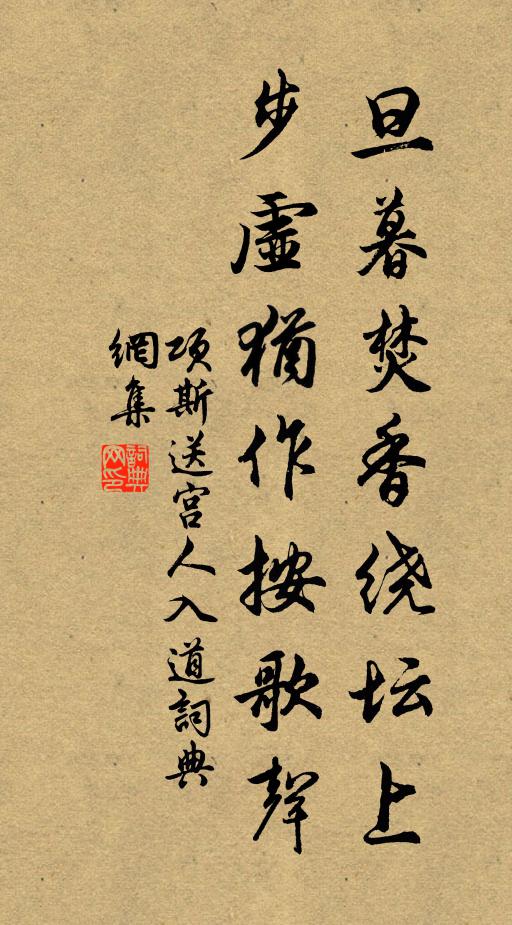 旦暮焚香绕坛上
步虚猶作按歌聲
项斯送宫人入道詞典
網集
詞典
网印